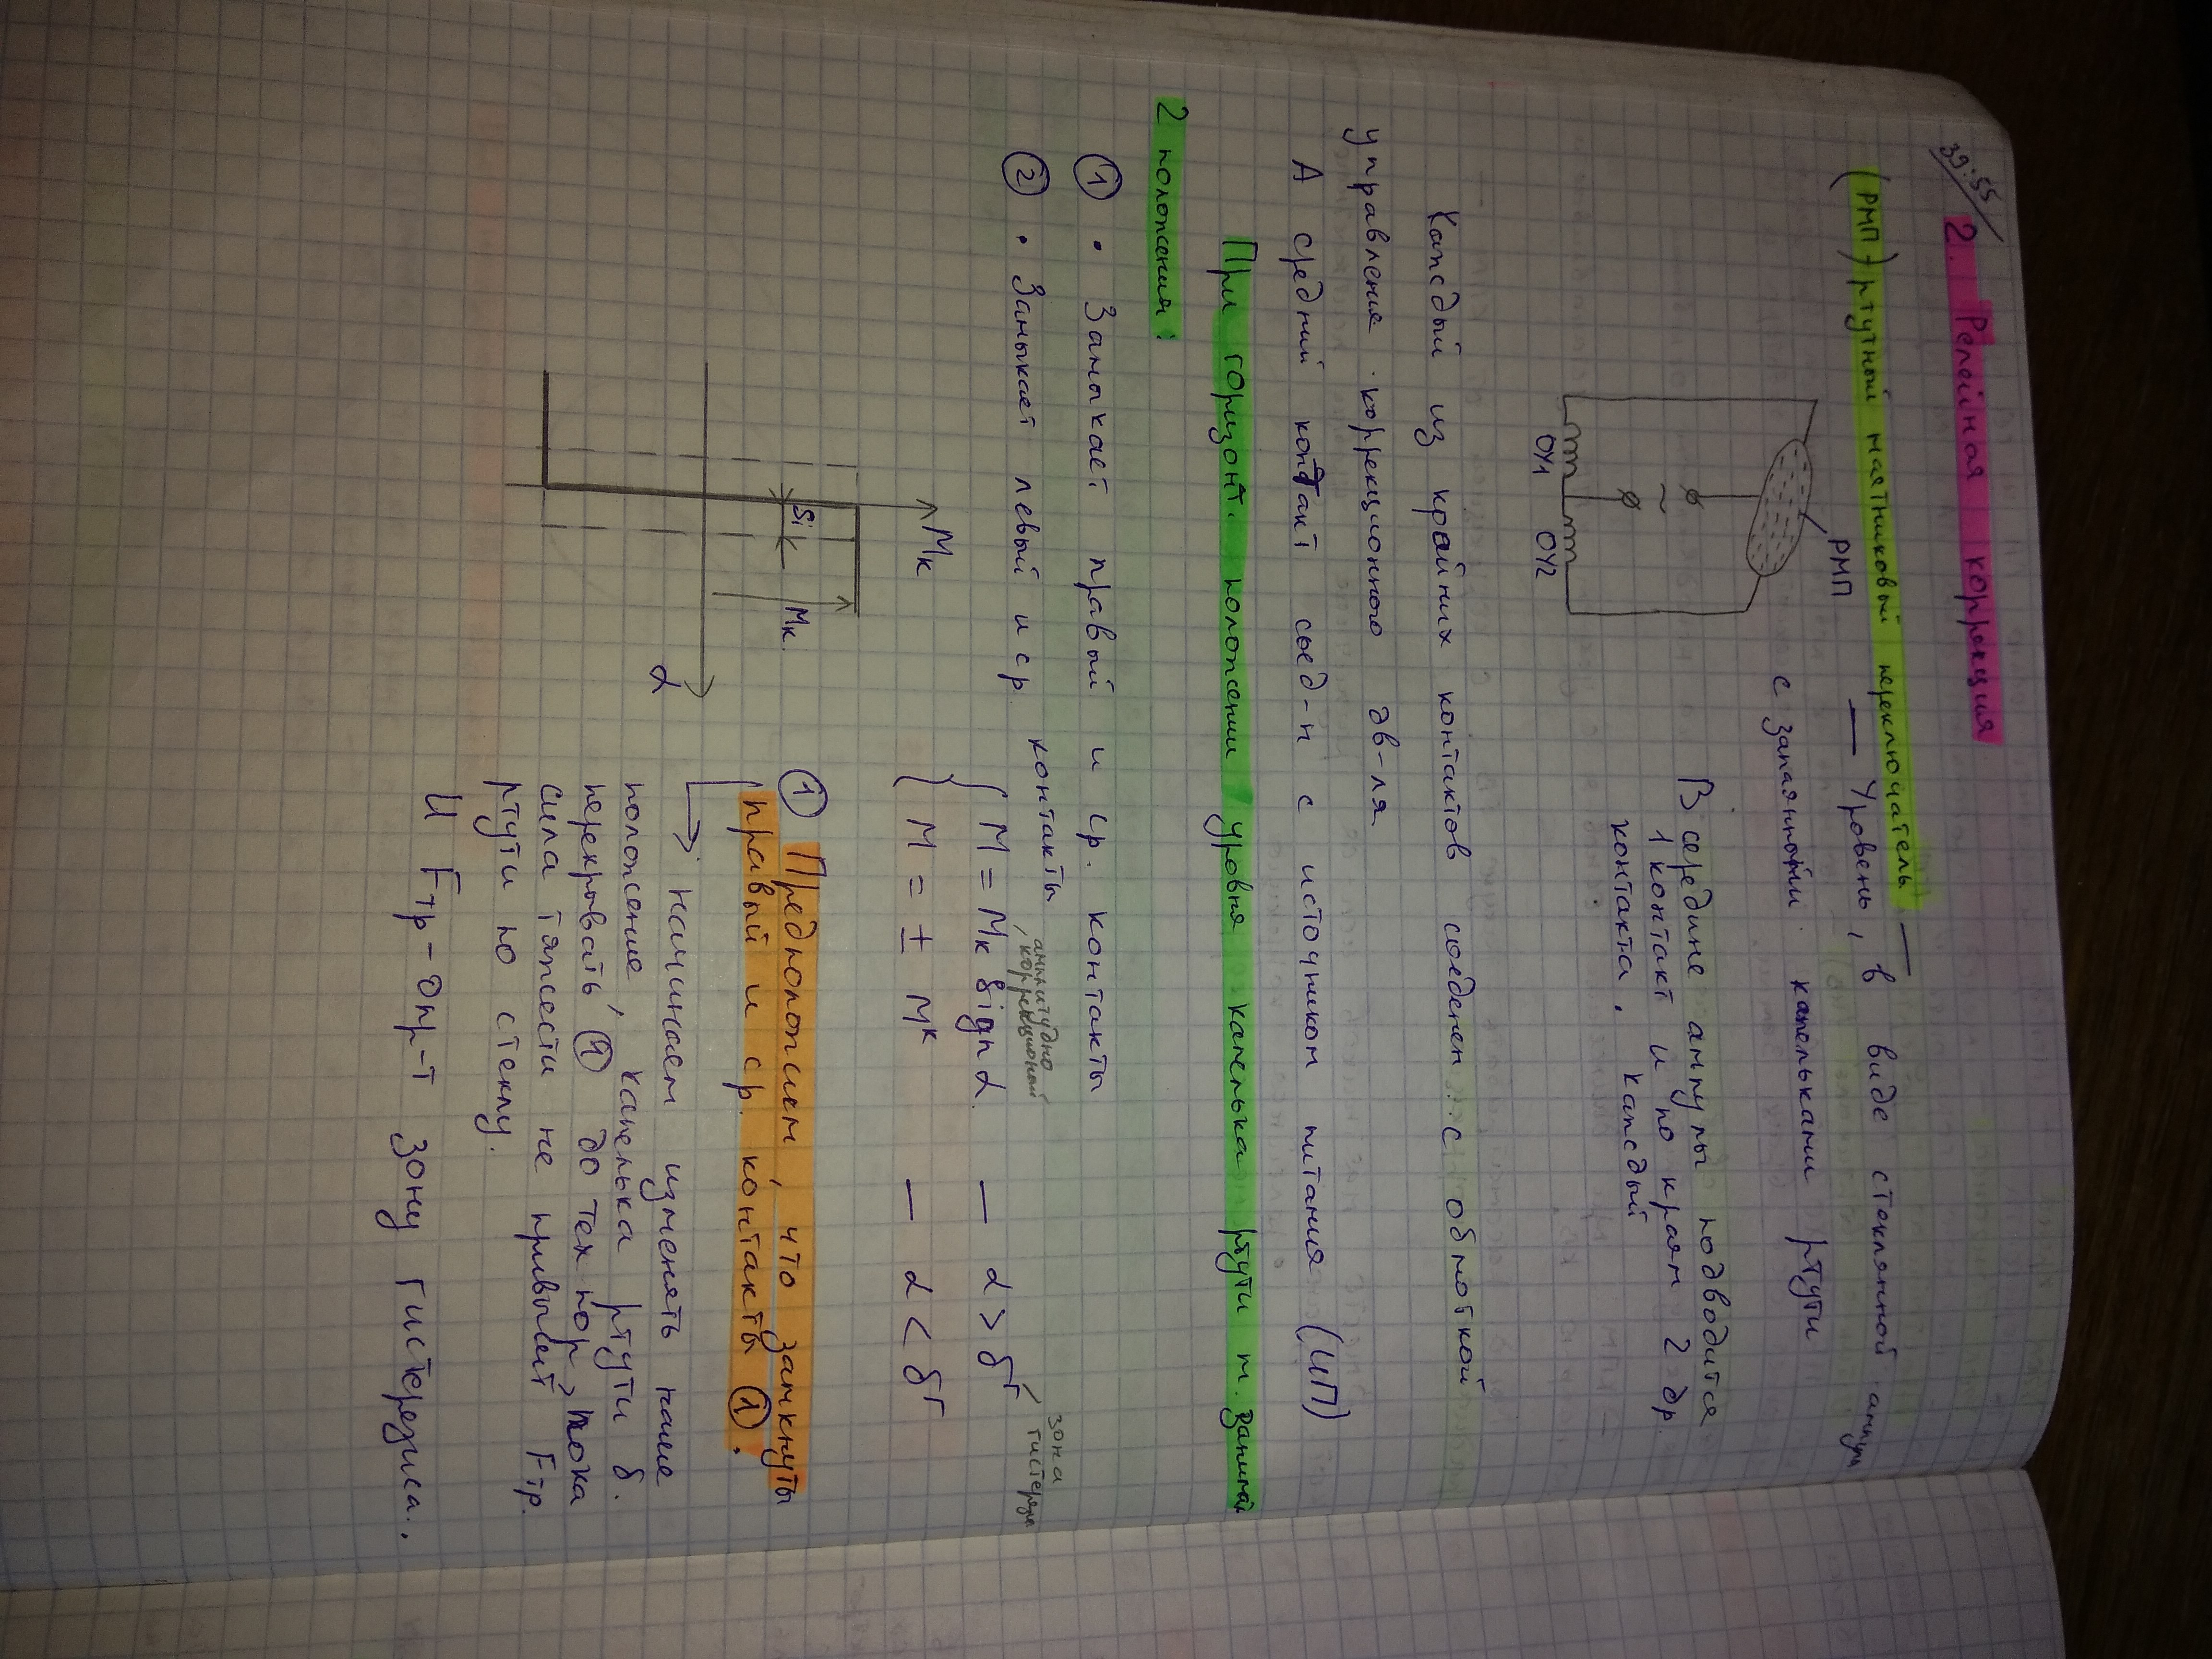 39:55
2. Релейная коррекция
(РМП) ртутный маятниковый переключатель —
— Уровень, в виде стеклянной ампулы
с запаянными капельками ртути
РМП
~
ОУ1 ОУ2
В середине ампулы подводится
1 контакт и по краям 2 др.
контакта, каждый
Каждый из крайних контактов соединен с обмоткой
управления коррекционного дв-ля
А средний контакт соед-н с источником питания (ИП)
При горизонт. положении уровня капелька ртути м. занимать
2 положения:
① • Замыкает правый и ср. контакты
② • Замыкает левый и ср. контакты
амплитудно коррекционный
зона гистерезиса
{ M = Mк sign α — α > δг
M = ± Mк — α < δг
Mк
δi
Mк
α
① Предположим, что замкнуты
правый и ср. контакты ①.
начинаем изменять наше
положение, капелька ртути б.
перекрывать ① до тех пор, пока
сила тяжести не превысит Fтр.
ртути по стеклу.
И Fтр – опр-т зону гистерезиса..